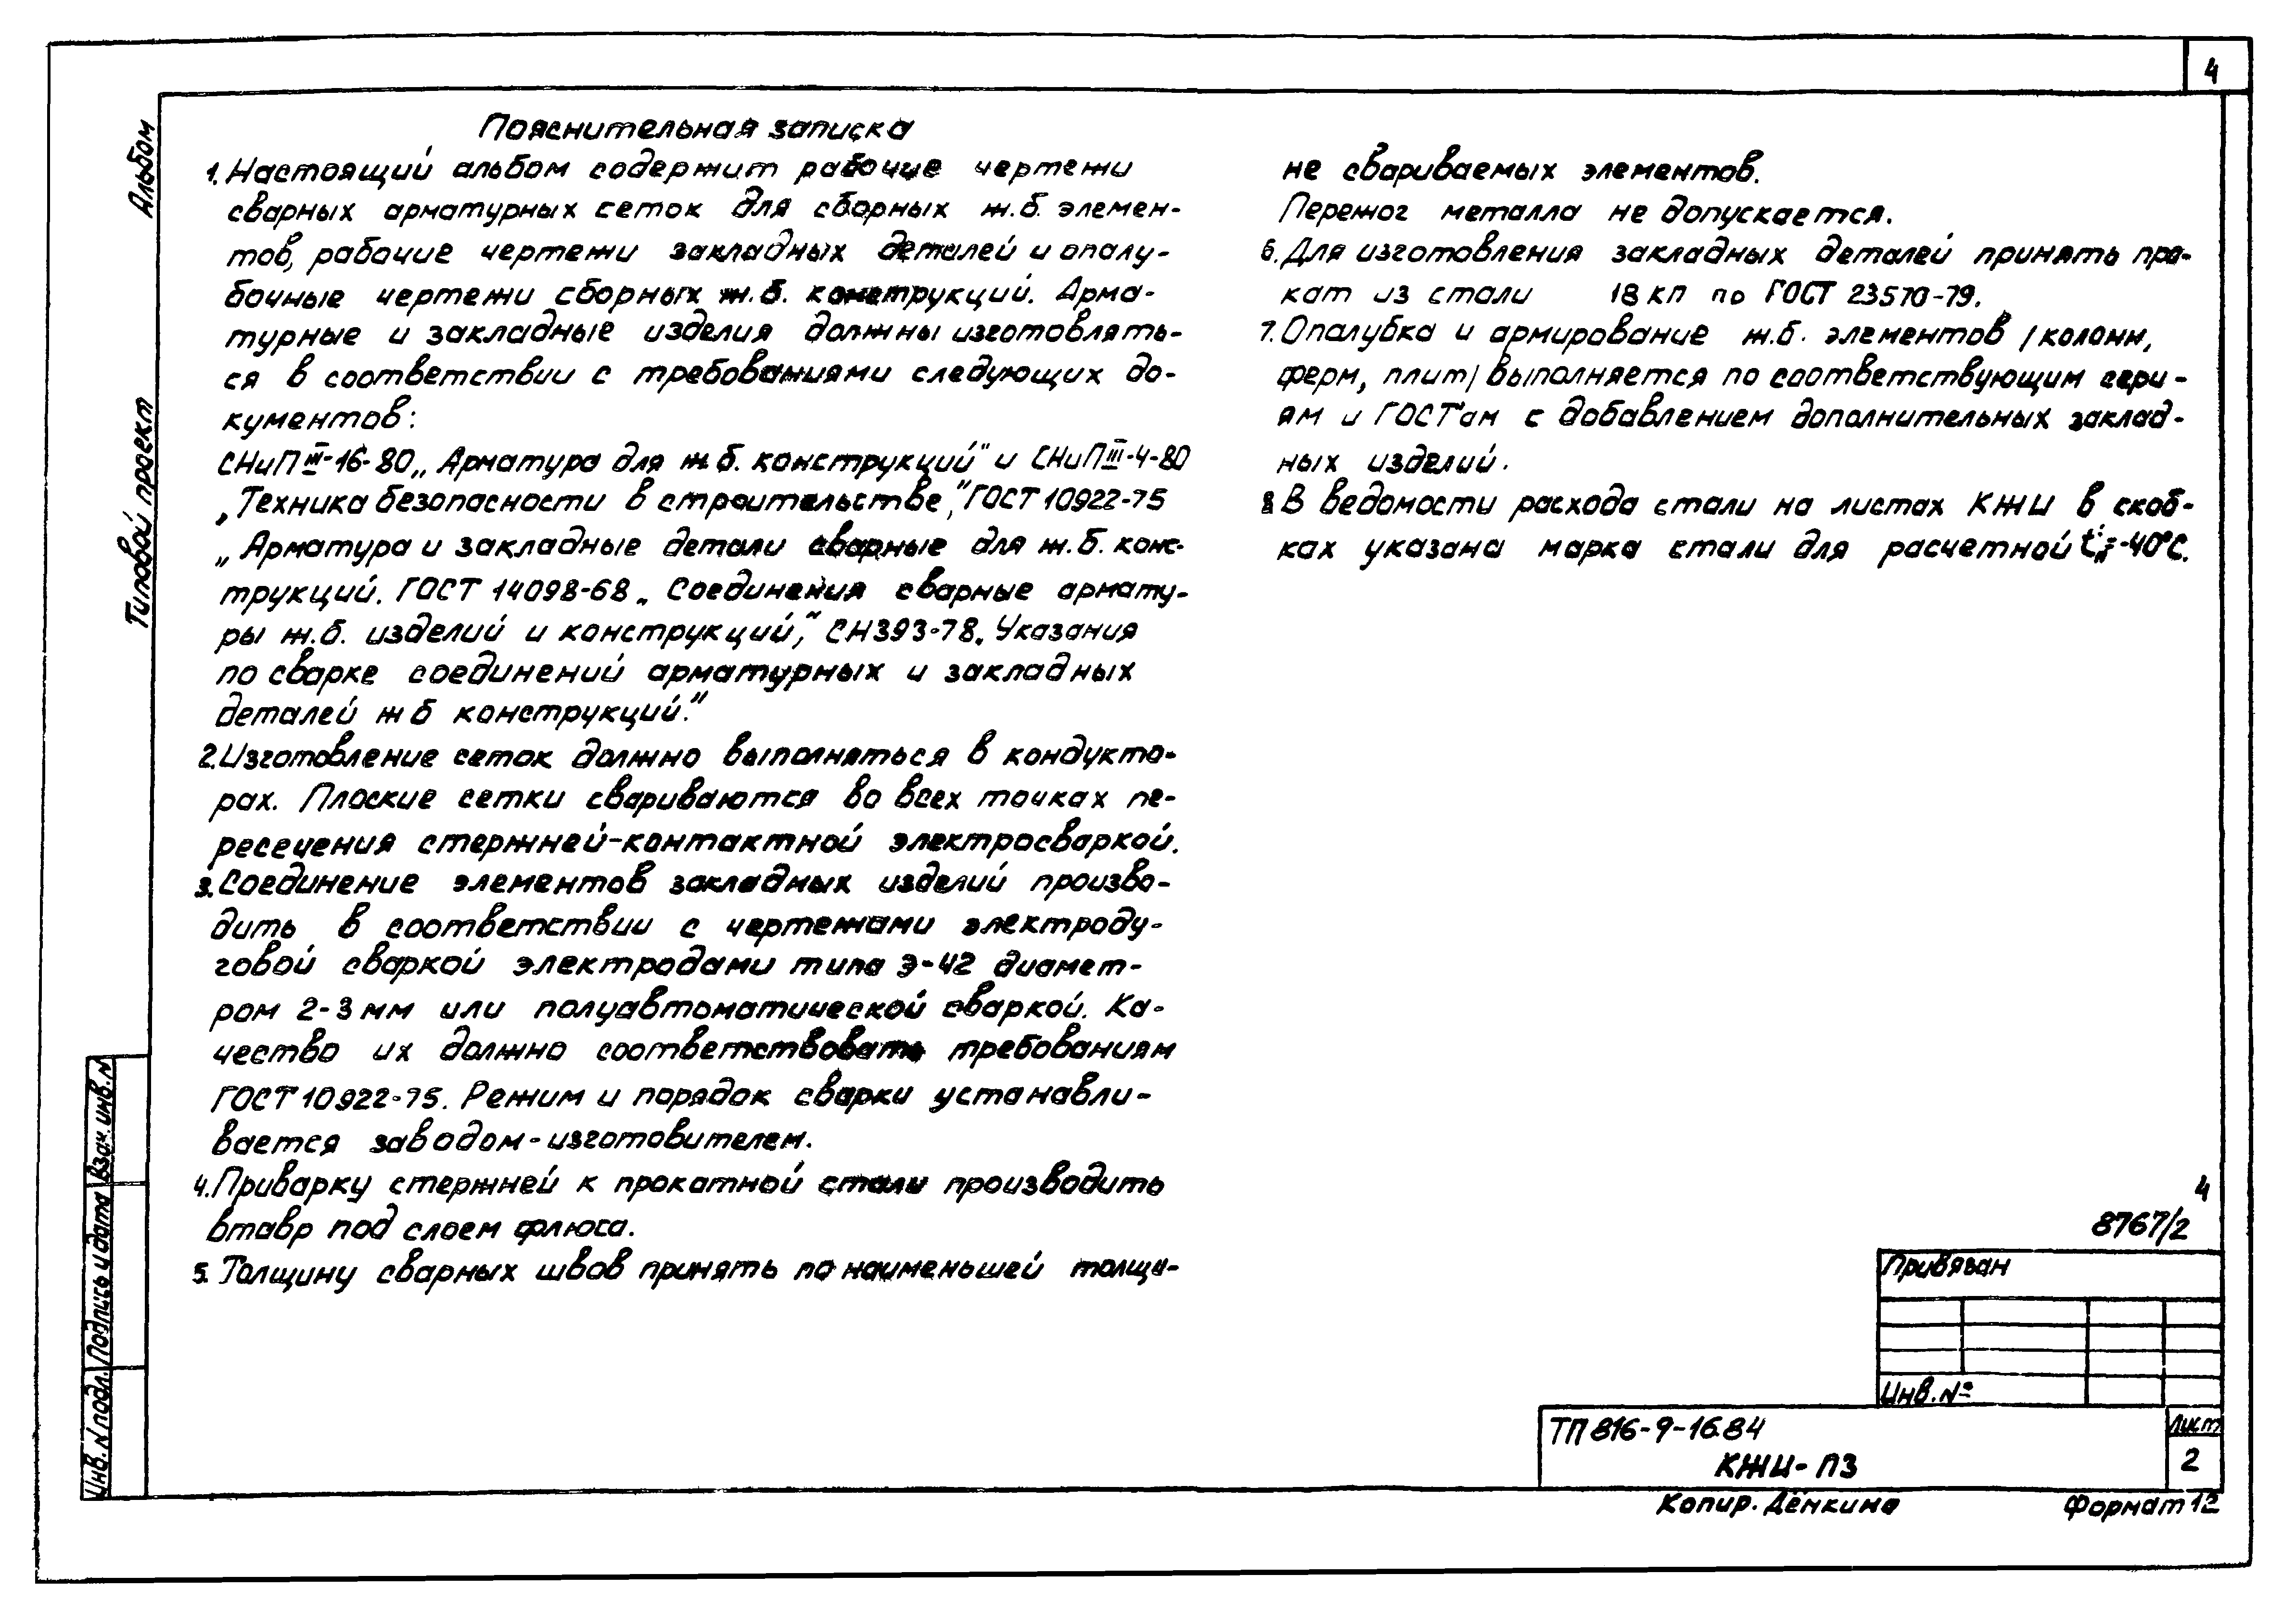 4
Альбом
Типовой проект
Пояснительная записка
1. Настоящий альбом содержит рабочие чертежи
сварных арматурных сеток для сборных ж.б. элемен-
тов, рабочие чертежи закладных деталей и опалу-
бочные чертежи сборных ж.б. конструкций. Арма-
турные и закладные изделия должны изготовлять-
ся в соответствии с требованиями следующих до-
кументов:
СНиП III-16-80 „Арматура для ж.б. конструкций" и СНиП III-4-80
„Техника безопасности в строительстве", ГОСТ 10922-75
„Арматура и закладные детали сварные для ж.б. конс-
трукций. ГОСТ 14098-68 „Соединения сварные армату-
ры ж.б. изделий и конструкций", СН 393-78 „Указания
по сварке соединений арматурных и закладных
деталей ж б конструкций."
2. Изготовление сеток должно выполняться в кондукто-
рах. Плоские сетки свариваются во всех точках пе-
ресечения стержней-контактной электросваркой.
3. Соединение элементов закладных изделий произво-
дить в соответствии с чертежами электроду-
говой сваркой электродами типа Э-42 диамет-
ром 2-3 мм или полуавтоматической сваркой. Ка-
чество их должно соответствовать требованиям
ГОСТ 10922-75. Режим и порядок сварки устанавли-
вается заводом-изготовителем.
4. Приварку стержней к прокатной стали производить
втавр под слоем флюса.
5. Толщину сварных швов принять по наименьшей толщи-
не свариваемых элементов.
Пережог металла не допускается.
6. Для изготовления закладных деталей принять про-
кат из стали 18 кп по ГОСТ 23570-79.
7. Опалубка и армирование ж.б. элементов /колонн,
ферм, плит/ выполняется по соответствующим сери-
ям и ГОСТ'ам с добавлением дополнительных заклад-
ных изделий.
8 В ведомости расхода стали на листах КЖИ в скоб-
ках указана марка стали для расчетной t°н=-40°С.
4
8767/2
Привязан
Инв. №
ТП 816-9-16.84
КЖИ-ПЗ
Лист
2
Копир. Дёнкина
Формат 12
Взам. инв. N
Подпись и дата
Инв. N подл.